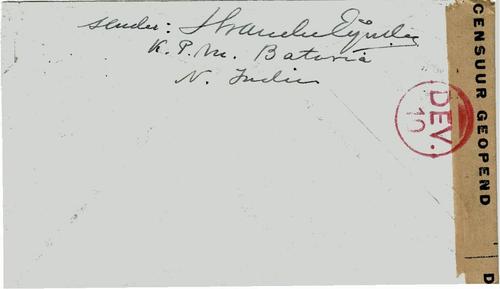 sender:
K. P. M. Batavia
N. Indie
DEV.
10
CENSUUR GEOPEND
D